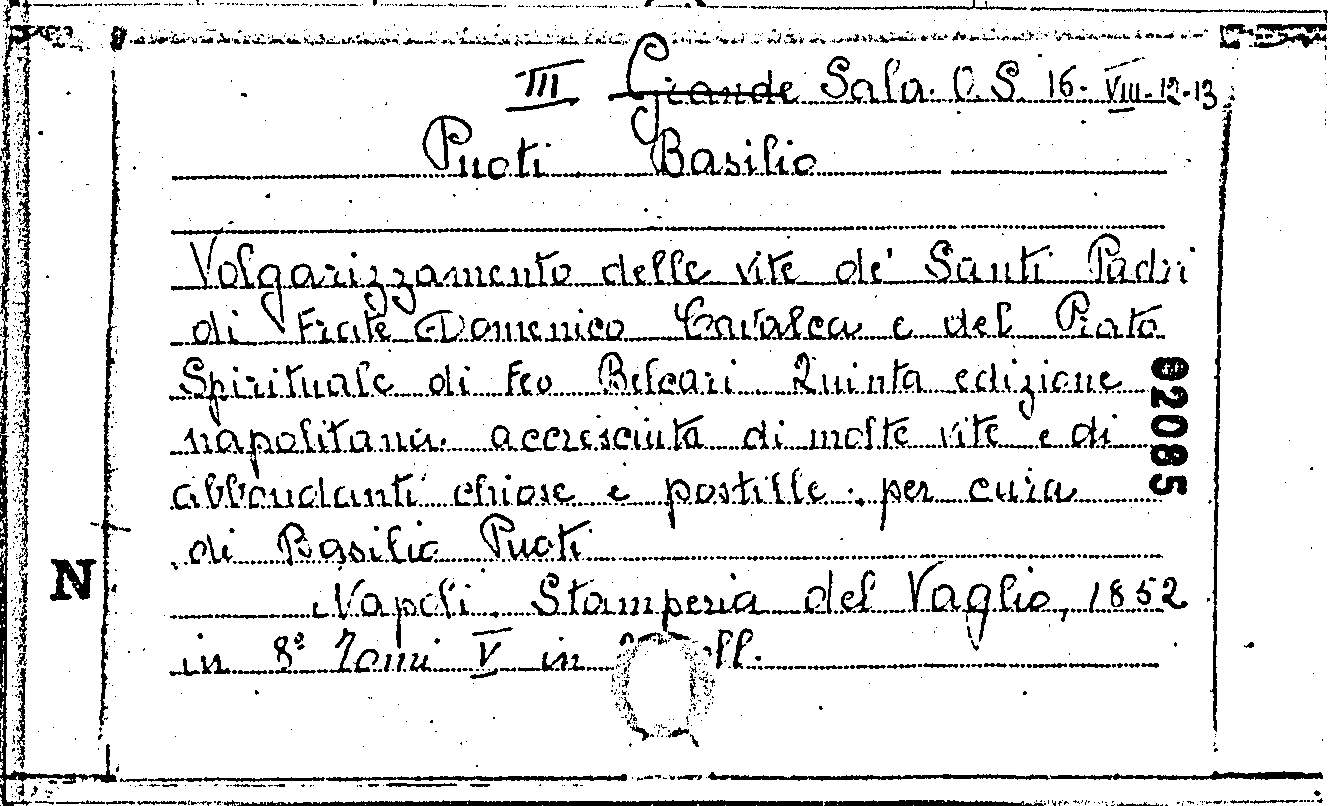 III Grande Sala. O. S. 16. VIII. 12-13
Puoti Basilio
Volgarizzamento delle vite de' Santi Padri
di Frate Domenico Cavalca e del Prato
Spirituale di Feo Belcari. Quinta edizione
napolitana. accresciuta di molte vite e di
abbondanti chiose e postille. per cura
di Basilio Puoti
Napoli. Stamperia del Vaglio, 1852
in 8º Tomi V in
82085
N